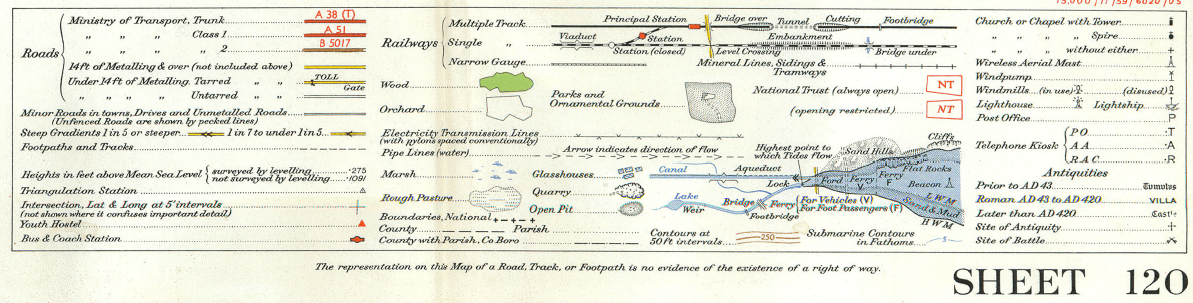 15,000/11/59/6020/OS
Roads
Ministry of Transport, Trunk A 38 (T)
" " " Class 1 A 51
" " " " 2 B 5017
14ft of Metalling & over (not included above)
Under 14ft of Metalling. Tarred " " TOLL Gate
" " " Untarred " "
Minor Roads in towns, Drives and Unmetalled Roads
(Unfenced Roads are shown by pecked lines)
Steep Gradients 1 in 5 or steeper 1 in 7 to under 1 in 5
Footpaths and Tracks
Heights in feet above Mean Sea Level
surveyed by levelling ·275
not surveyed by levelling ·1091
Triangulation Station
Intersection, Lat & Long at 5' intervals
(not shown where it confuses important detail)
Youth Hostel
Bus & Coach Station
Railways
Multiple Track
Single "
Narrow Gauge
Principal Station
Bridge over
Tunnel
Cutting
Footbridge
Viaduct
Station
Station (closed)
Level Crossing
Embankment
Bridge under
Mineral Lines, Sidings & Tramways
Wood
Orchard
Parks and Ornamental Grounds
National Trust (always open) NT
(opening restricted) NT
Electricity Transmission Lines
(with pylons spaced conventionally)
Pipe Lines (water) Arrow indicates direction of flow
Marsh
Glasshouses
Rough Pasture
Quarry
Open Pit
Boundaries, National
County Parish
County with Parish, Co Boro
Highest point to which Tides flow
Canal
Aqueduct
Lock
Lake
Weir
Bridge
Footbridge
Ferry
For Vehicles (V)
For Foot Passengers (F)
Ford
Ferry V
Ferry F
Sand Hills
Cliffs
Flat Rocks
Beacon
L W M
Sand & Mud
H W M
Contours at 50ft intervals 250
Submarine Contours in Fathoms 5
Church or Chapel with Tower
" " " " Spire
" " " without either
Wireless Aerial Mast
Windpump
Windmills (in use) (disused)
Lighthouse Lightship
Post Office P
Telephone Kiosk
P O T
A A A
R A C R
Antiquities
Prior to AD 43 Tumulus
Roman AD 43 to AD 420 VILLA
Later than AD 420 Castle
Site of Antiquity
Site of Battle
The representation on this Map of a Road, Track, or Footpath is no evidence of the existence of a right of way.
SHEET 120